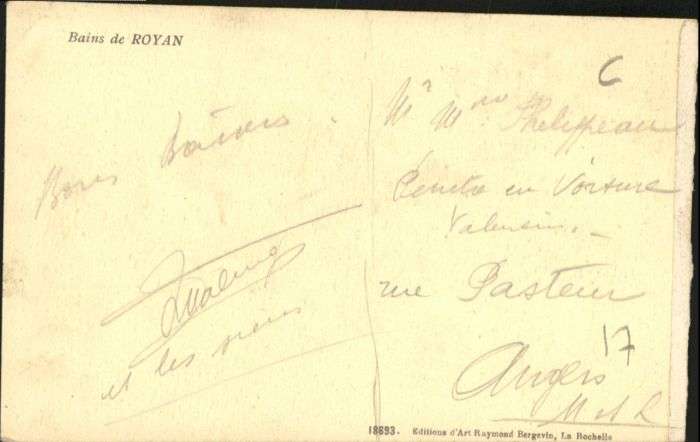 Bains de ROYAN
C
Bons Baisers.
et les miens
Mr Mme Phelippeau
Peintre en Voiture
rue Pasteur
17
Angers
M et L
18893. Editions d'Art Raymond Bergevin, La Rochelle